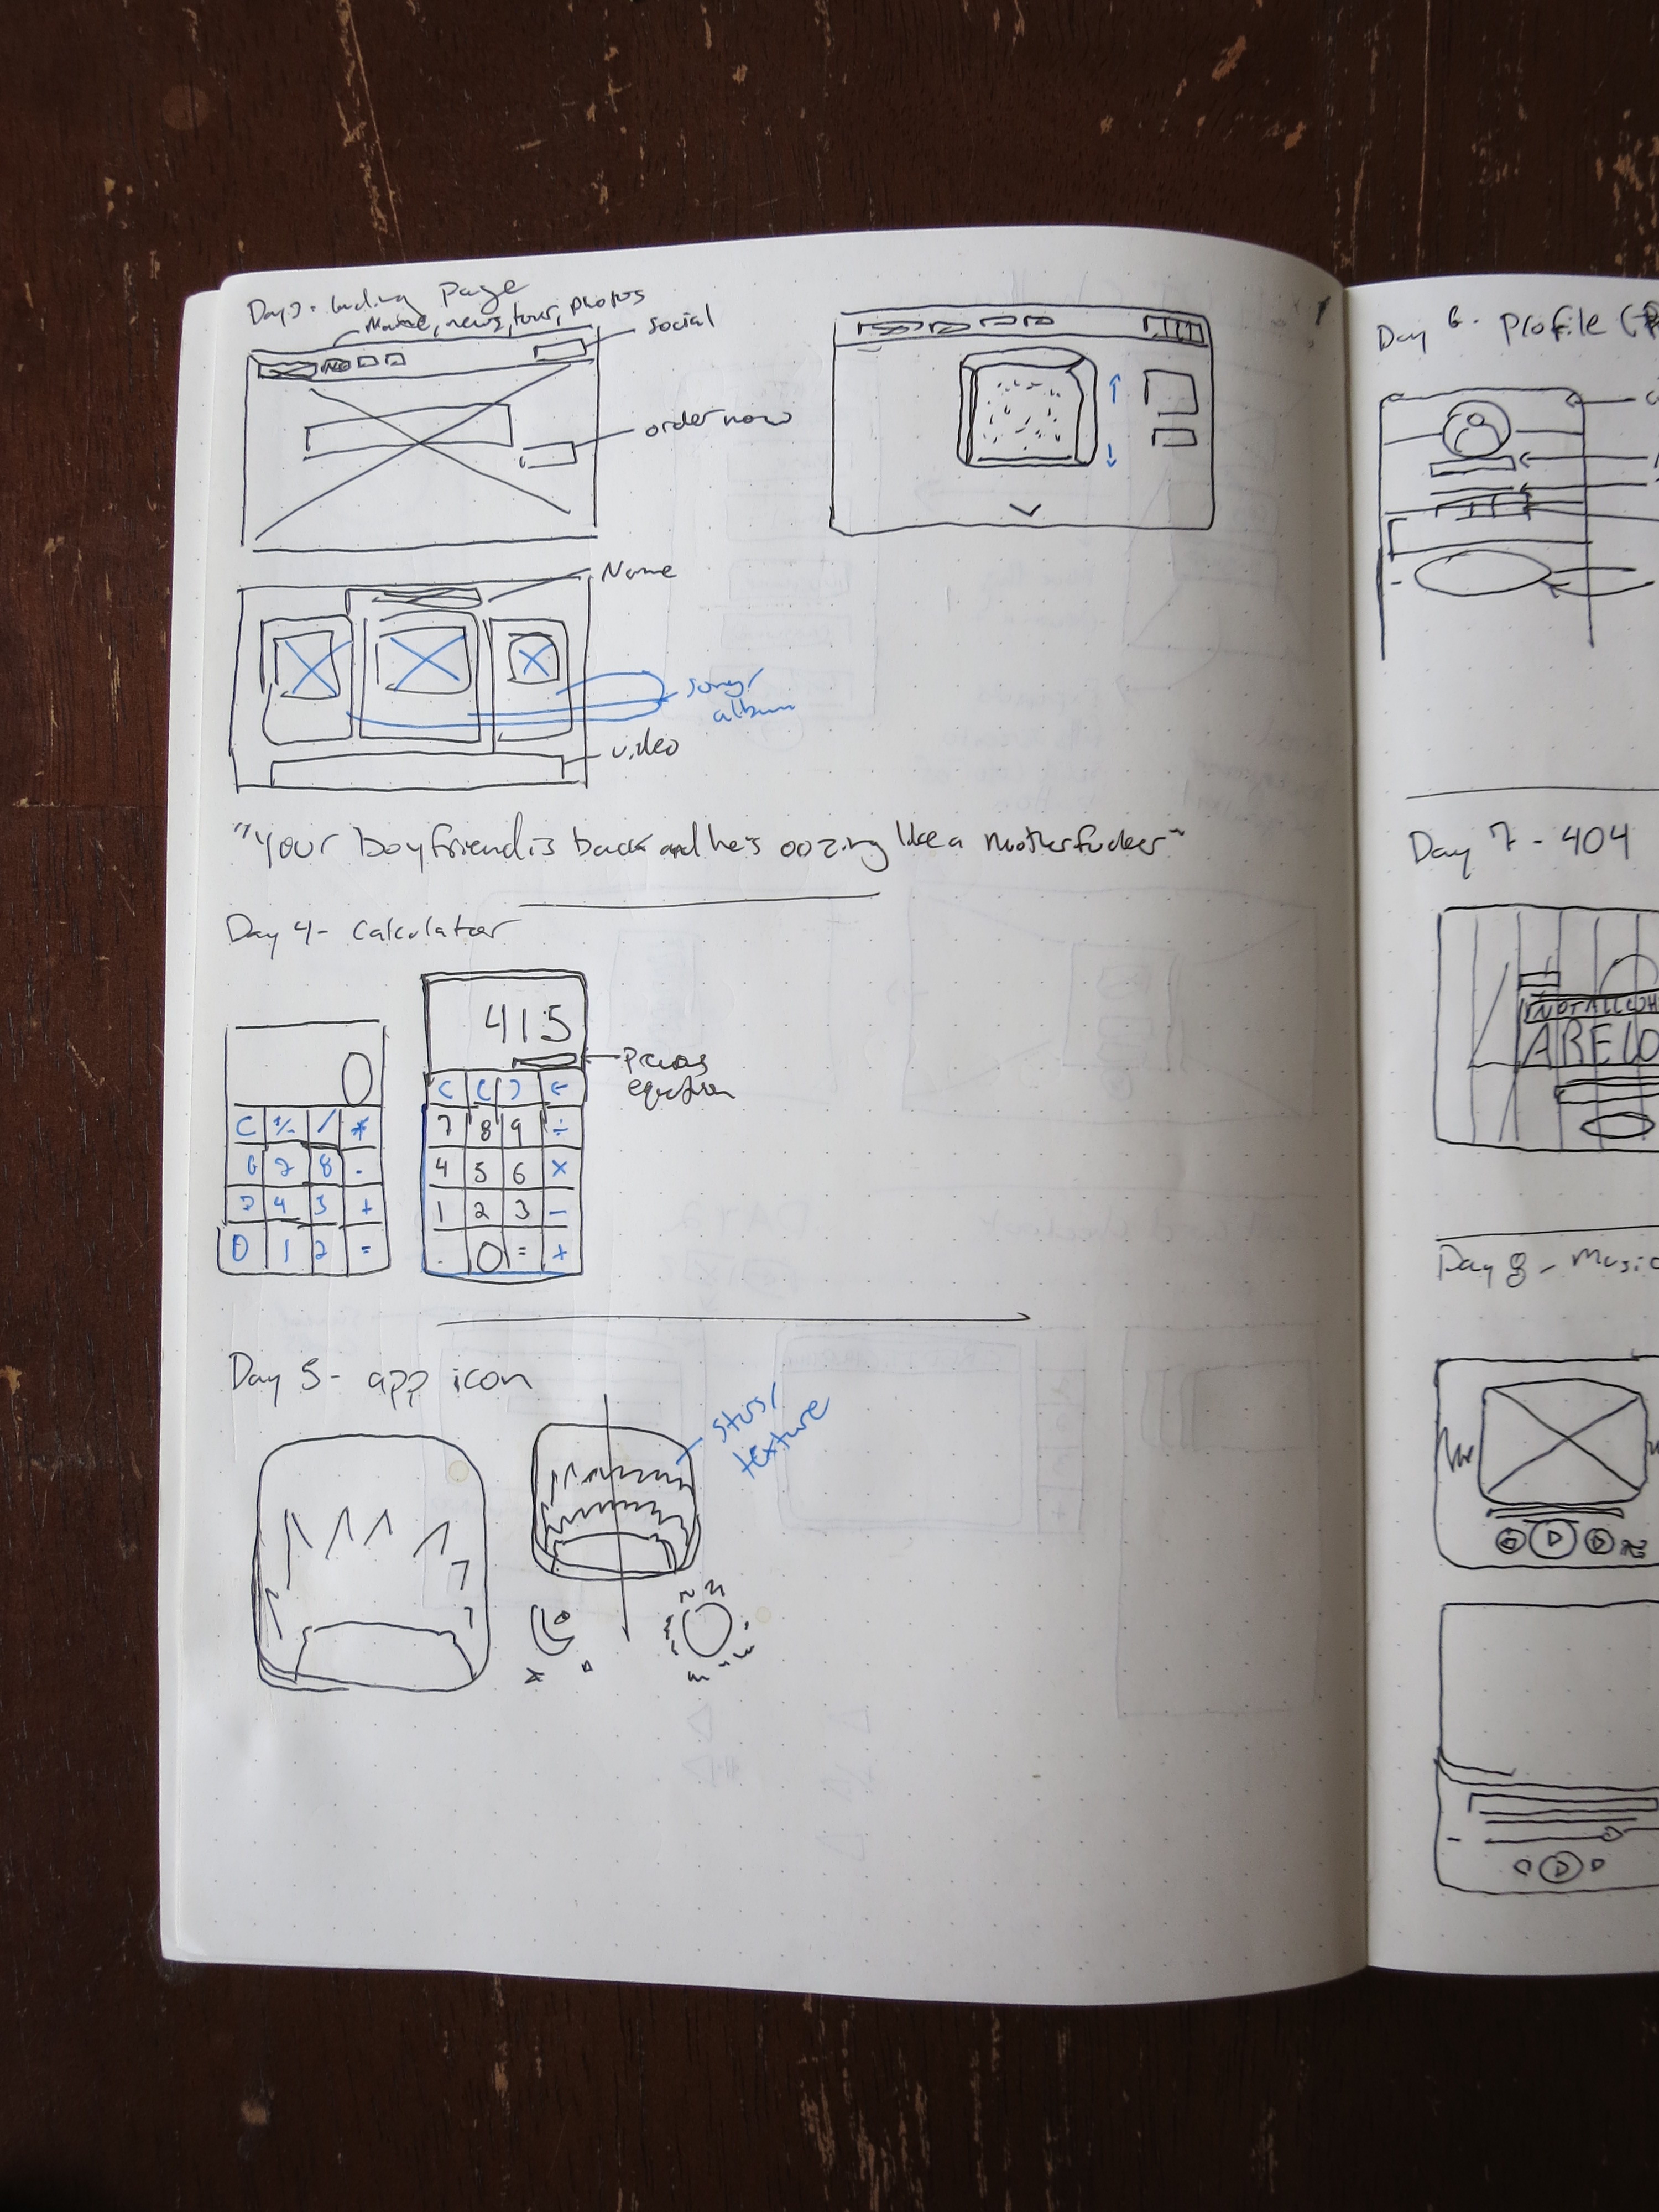 Day 3 - landing page
Name, news, tour, photos
social
order now
Name
song/
album
video
"Your boyfriend is back and he's oozing like a motherfucker"
Day 4 - Calculator
0
C +/- / *
6 7 8 -
3 4 5 +
0 1 2 =
415
Previous
equation
C ( ) ←
7 8 9 ÷
4 5 6 ×
1 2 3 −
. 0 = +
Day 5 - app icon
stars/
texture
Day 6 - Profile (
Day 7 - 404
ABELO
Day 8 - Music